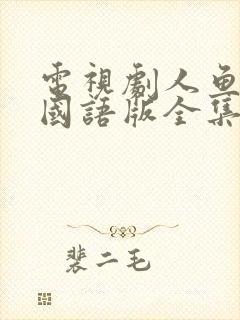 電視劇人魚
國語版全集
裴二毛